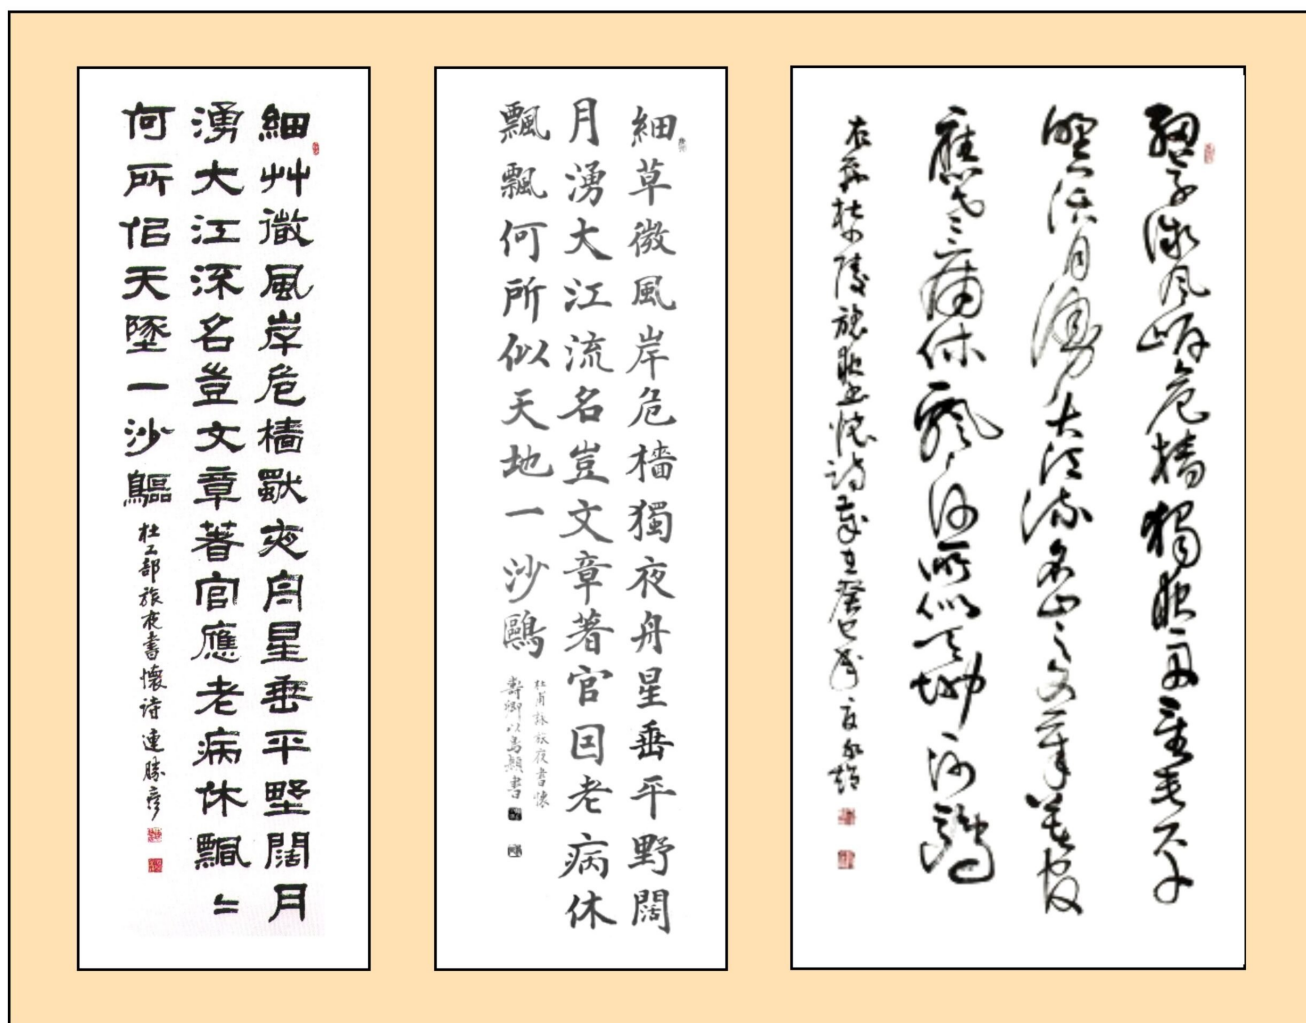 細艸微風岸危檣獨夜舟星垂平野闊月
湧大江流名豈文章著官應老病休飄〻
何所佀天墬一沙鷗
杜工部旅夜書懷詩 連勝彥
細草微風岸危檣獨夜舟星垂平野闊
月湧大江流名豈文章著官因老病休
飄飄何所似天地一沙鷗
杜甫詠旅夜書懷
細草微風岸危檣獨夜舟星垂平
野闊月湧大江流名豈文章著官
應老病休飄〻何所似天地沙鷗
杜少陵旅夜書懷詩歲在癸巳